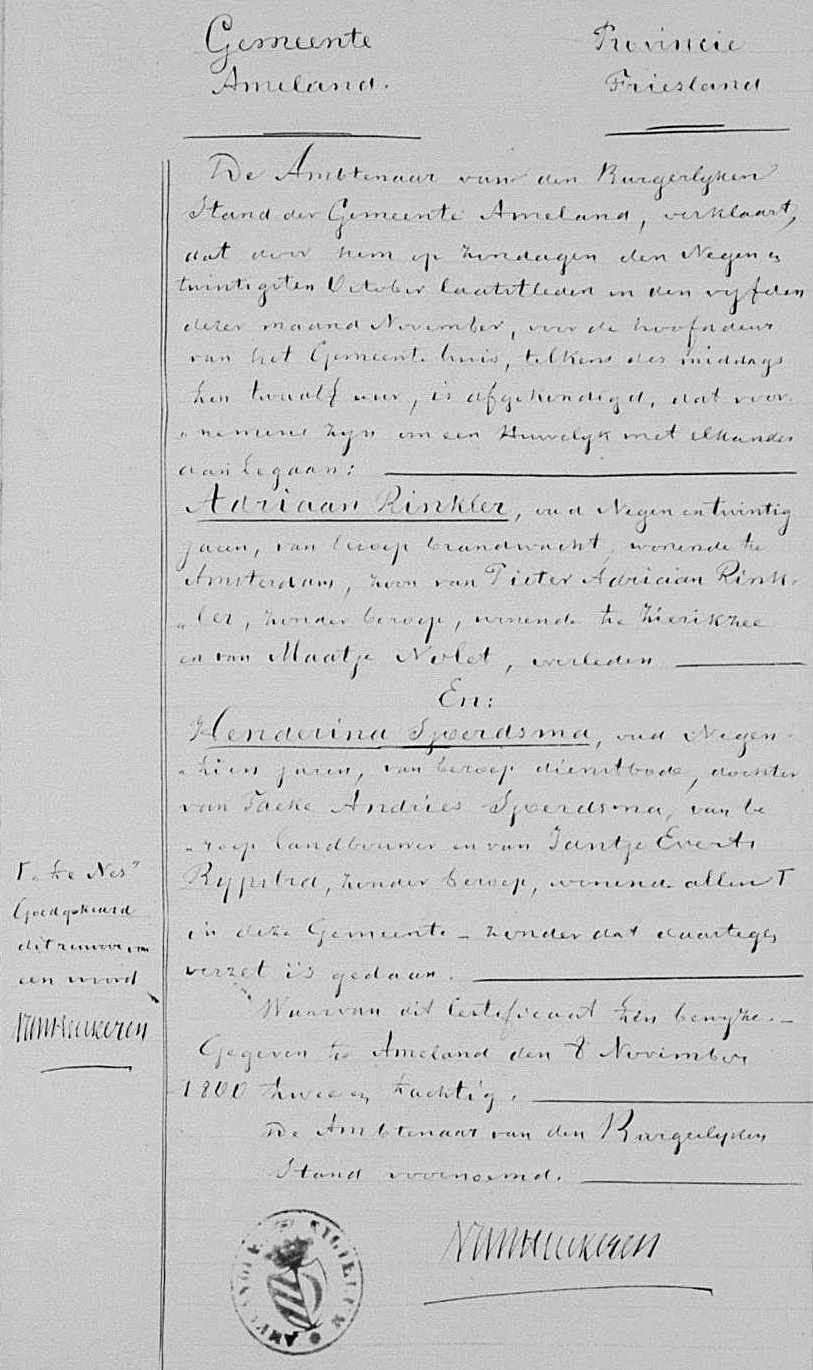 Gemeente
Ameland.
Provincie
Friesland
De Ambtenaar van den Burgerlyken
Stand der Gemeente Ameland, verklaart,
dat door hem op Zondagen den Negen en
twintigsten October laatstleden en den vyfden
dezer maand November, voor de hoofddeur
van het Gemeente huis, telkens des middags
ten twaalf uur, is afgekondigd, dat voor-
nemens zyn om een Huwelyk met elkander
aan te gaan:
Adriaan Rinkler, oud Negen en twintig
jaren, van beroep brandwacht, wonende te
Amsterdam, zoon van Pieter Adriaan Rink-
ler, zonder beroep, wonende te Zierikzee
en van Maatje Nolet, overleden
En:
Henderina Sjoerdsma, oud Negen-
tien jaren, van beroep dienstbode, dochter
van Taeke Andries Sjoerdsma, van be
roep landbouwer en van Jantje Everts
Rypstra, zonder beroep, wonende allen Γ
in deze Gemeente - zonder dat daartegen
verzet is gedaan.
Γ te Nes"
Goedgekeurd
dit renvooi van
een woord
Waarvan dit Certificaat ten bewyze.-
Gegeven te Ameland den 8 November
1800 twee en tachtig.
De Ambtenaar van den Burgerlyken
Stand voornoemd.